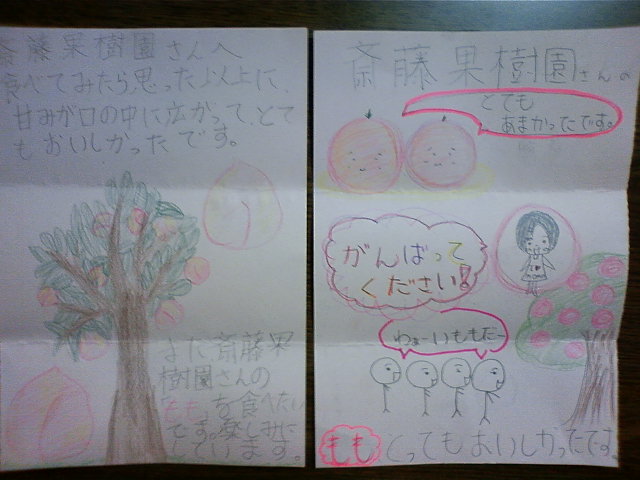 斎藤果樹園さんへ
食べてみたら、思った以上に、
甘みが口の中に広がって、とて
もおいしかったです。
また、斎藤果
樹園さんの
「もも」を食べたい
です。楽しみに
しています。
斎藤果樹園さんの
とても
あまかったです。
がんばって
ください!
わぁーいももだー
ももとってもおいしかったです。